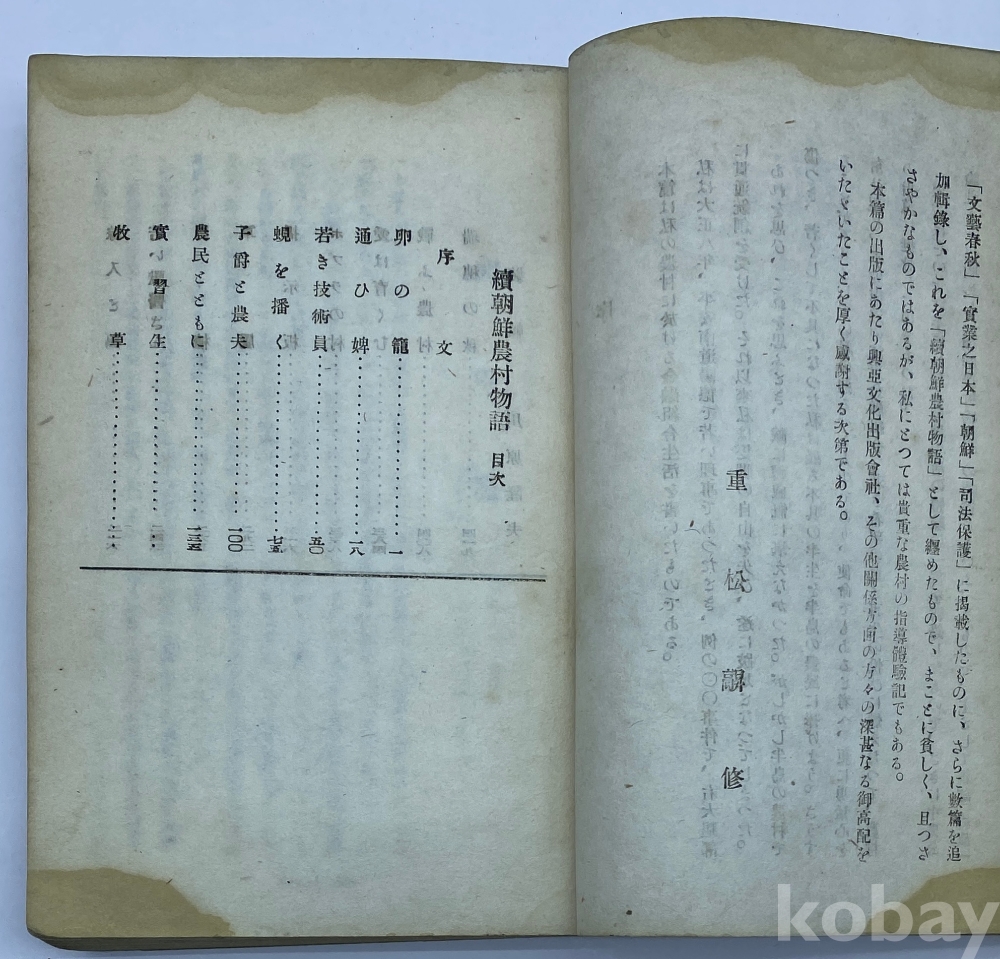 「文藝春秋」「實業之日本」「朝鮮」「司法保護」に揭載したものに、さらに數篇を追
加輯錄し、これを「續朝鮮農村物語」として纒めたもので、まことに貧しく、且つさ
さやかなものではあるが、私にとつては貴重な農村の指導體驗記でもある。
本篇の出版にあたり興亞文化出版會社、その他關係方面の方々の深甚なる御高配を
いたゞいたことを厚く感謝する次第である。
重松髜修
續朝鮮農村物語 目次
序文
卵の籠……一
通ひ婢……一八
若き技術員……五〇
蜆を播く……七五
子爵と農夫……一〇〇
農民とともに……一三五
實習生
牧草
kobay